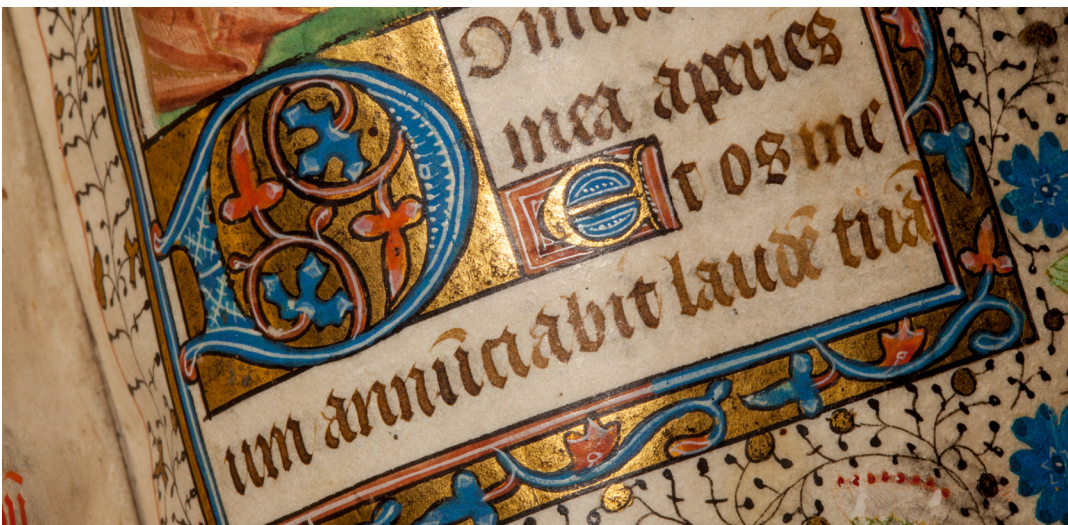 DOmine
mea aperies
Et os me
um annūciabit laudē tuā